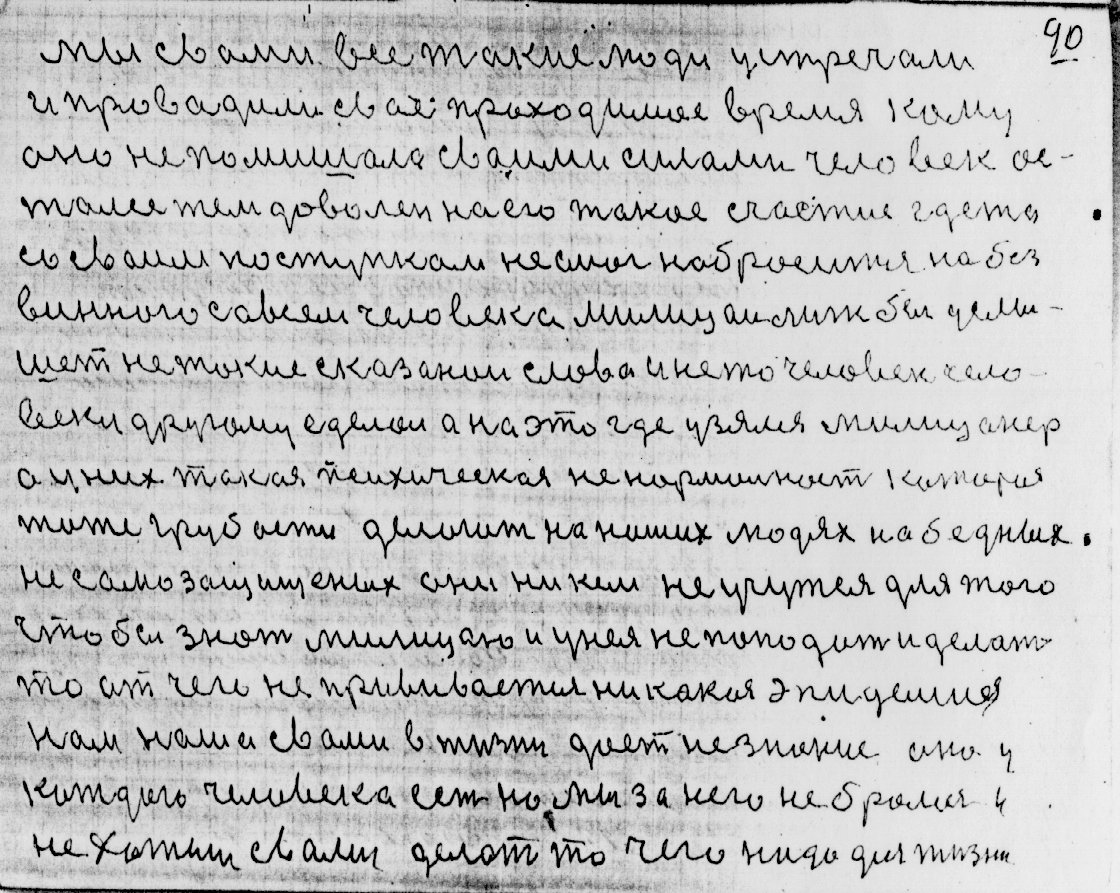 90
мы свами все такие люди устречали
и провадили свае праходимое время кому
оно непомишала сваими силами человек ос-
талсе тем доволен на его такое счастие гдета
со сваим поступкам несмог набросится на без
винного совсем человека милицаи лиж бы услы-
шет не токие сказанои слова и нето человек чело-
веки другому сделои а на это где узялся милицанер
а у них такая психическая ненормолност которая
тоже грубости делоит на наших людях на бедных
не само защищеных они ни кем не учутся для того
чтобы знот милицаю и унея не поподот и делат
то от чего не прививается ни какая эпидемия
нам наша свами в жизни дает незнание оно у
каждого человека ест но мы за него не бролис и
не хотим свами делат то чего нидо для жизни